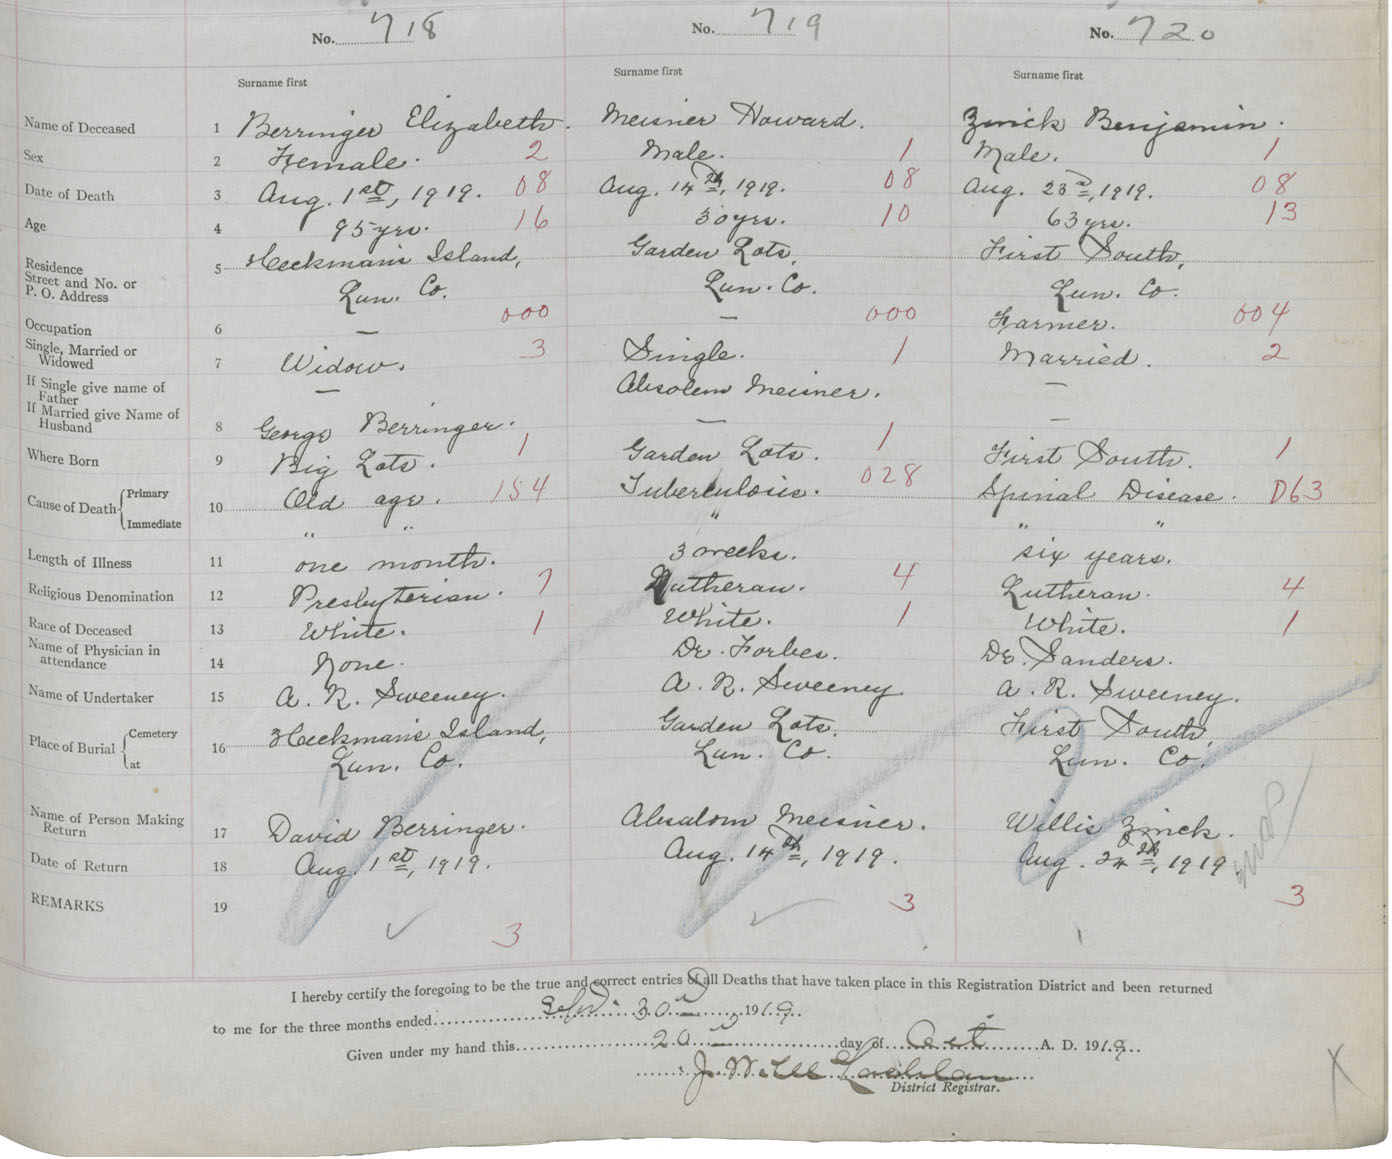 No. 718 No. 719 No. 720
Surname first Surname first Surname first
Name of Deceased 1 Berringer Elizabeth. Meisner Howard. Zinck Benjamin.
Sex 2 Female. 2 Male. 1 Male. 1
Date of Death 3 Aug. 1st, 1919. 08 Aug. 14th, 1919. 08 Aug. 23d, 1919. 08
Age 4 95 yrs. 16 30 yrs. 10 63 yrs. 13
Residence 5 Heckman's Island, Garden Lots, First South,
Street and No. or
P. O. Address Lun. Co. Lun. Co. Lun. Co.
Occupation 6 — 000 — 000 Farmer. 004
Single, Married or
Widowed 7 Widow. 3 Single. 1 Married. 2
If Single give name of
Father — Absolem Meisner. —
If Married give Name of
Husband 8 George Berringer. — —
Where Born 9 Big Lots. 1 Garden Lots. 1 First South. 1
Cause of Death Primary 10 Old age. 154 Tuberculosis. 028 Spinal Disease. 063
Immediate " " " " "
Length of Illness 11 one month. 3 weeks. six years.
Religious Denomination 12 Presbyterian. 7 Lutheran. 4 Lutheran. 4
Race of Deceased 13 White. 1 White. 1 White. 1
Name of Physician in
attendance 14 None. Dr. Forbes. Dr. Sanders.
Name of Undertaker 15 A. R. Sweeney. A. R. Sweeney. A. R. Sweeney.
Place of Burial Cemetery 16 Heckman's Island, Garden Lots, First South,
at Lun. Co. Lun. Co. Lun. Co.
Name of Person Making
Return 17 David Berringer. Absalom Meisner. Willis Zinck.
Date of Return 18 Aug. 1st, 1919. Aug. 14th, 1919. Aug. 24th, 1919.
REMARKS 19 3 3 3
I hereby certify the foregoing to be the true and correct entries of all Deaths that have taken place in this Registration District and been returned
to me for the three months ended 30 1919.
Given under my hand this 20 day of Oct A. D. 1919.
District Registrar.